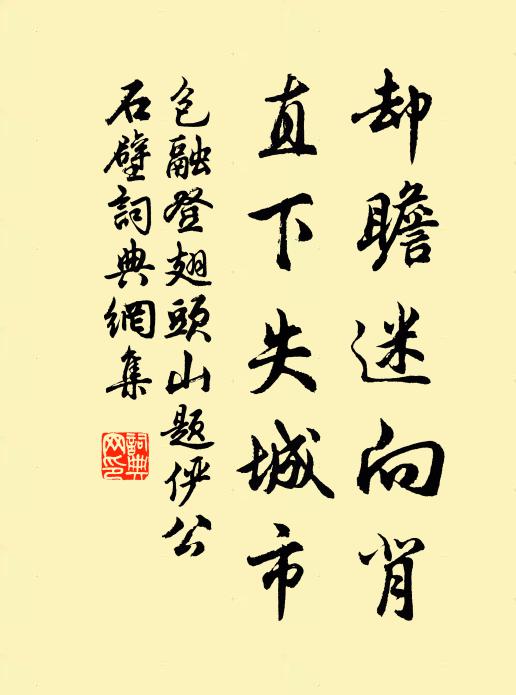 却瞻迷向背
直下失城市
包融登翅頭山題儼公
石壁詞典網集
詞典
网印